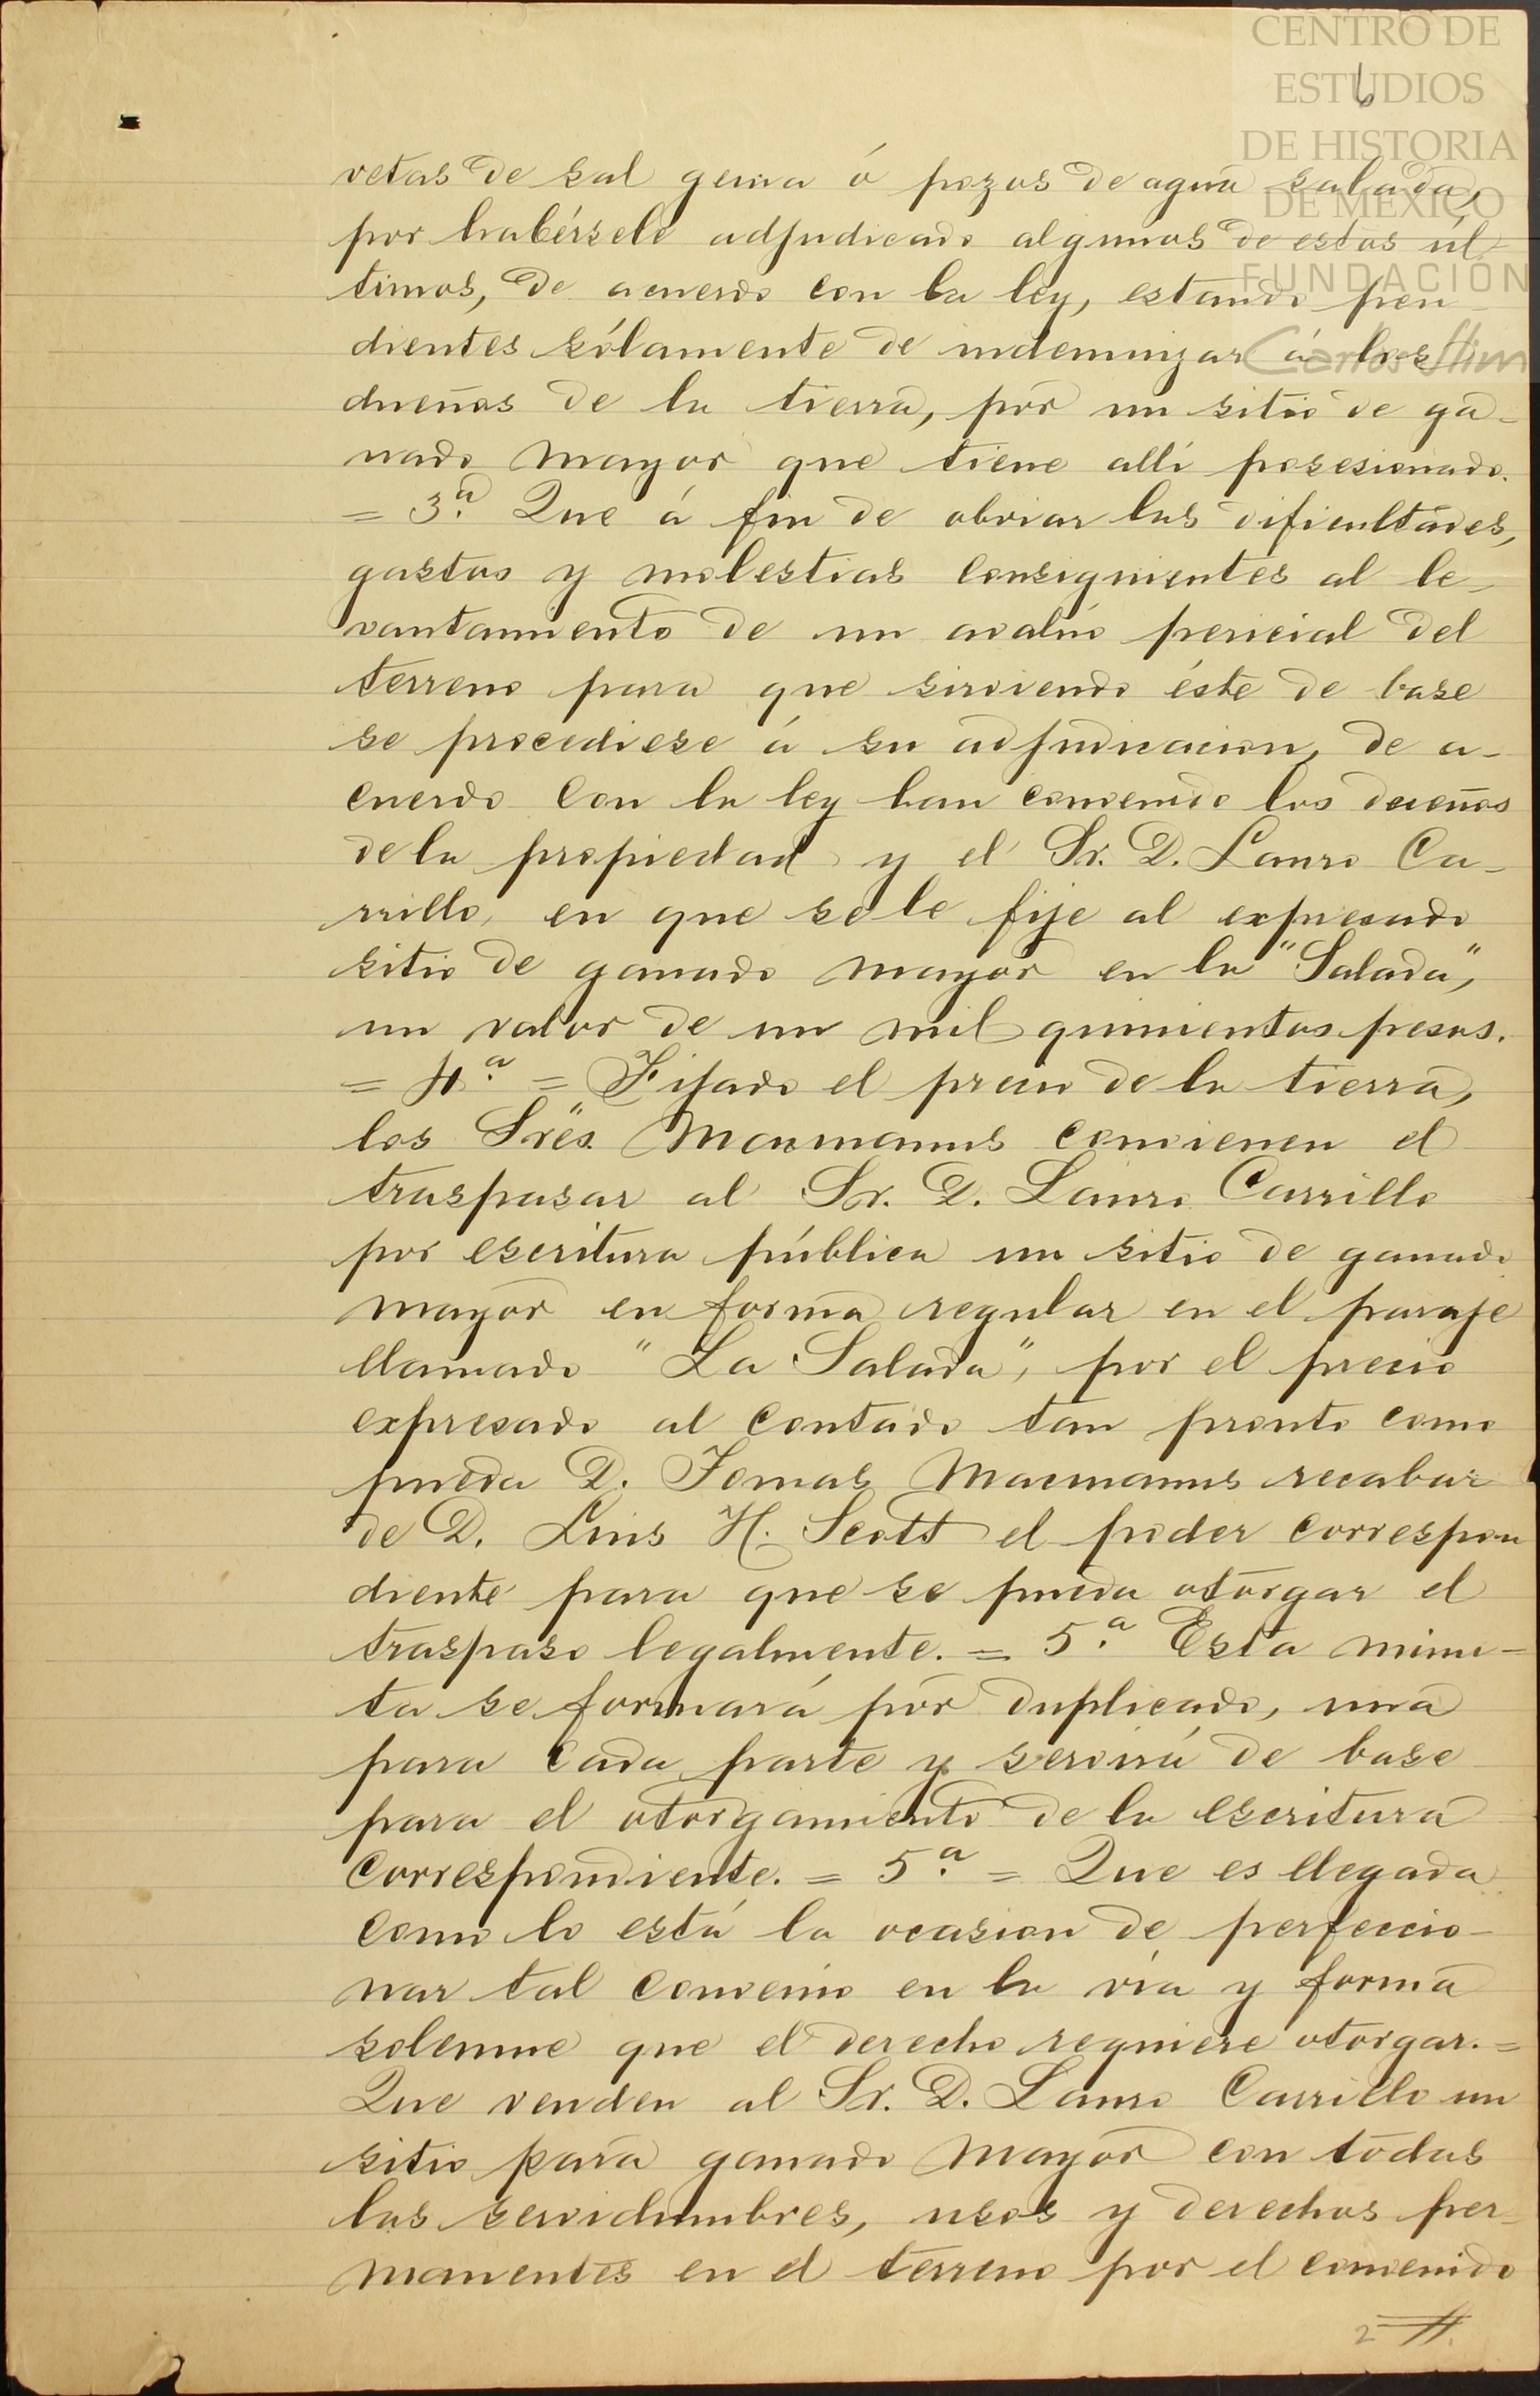 CENTRO DE
ESTUDIOS
DE HISTORIA
DE MÉXICO
FUNDACIÓN
Carlos Slim
6
vetas de sal gema ó pozos de agua salada,
por habérsele adjudicado algunos de estos úl-
timos, de acuerdo con la ley, estando pen-
dientes sólamente de indemnizar á los
dueños de la tierra, por un sitio de ga-
nado mayor que tiene allí posesionado.
= 3.ª Que á fin de obviar las dificultades,
gastos y molestias consiguientes al le-
vantamiento de un avalúo pericial del
terreno para que sirviendo éste de base
se procediese á su adjudicacion, de a-
cuerdo con la ley han convenido los dueños
de la propiedad y el Sr. D. Lauro Ca-
rrillo, en que se le fije al expresado
sitio de ganado mayor en la "Salada",
un valor de un mil quinientos pesos.
= 4.ª = Fijado el precio de la tierra,
los Sres. Macmanus convienen el
traspasar al Sr. D. Lauro Carrillo
por escritura pública un sitio de ganado
mayor en forma regular en el paraje
llamado "La Salada", por el precio
expresado al contado tan pronto como
pueda D. Tomas Macmanus recabar
de D. Luis H. Scott el poder correspon
diente para que se pueda otorgar el
traspaso legalmente. = 5.ª Esta minu-
ta se formará por duplicado, una
para cada parte y servirá de base
para el otorgamiento de la escritura
correspondiente. = 5.ª = Que es llegada
como lo está la ocasion de perfeccio-
nar tal convenio en la via y forma
solemne que el derecho requiere otorgar. =
Que venden al Sr. D. Lauro Carrillo un
sitio para ganado mayor con todas
las servidumbres, usos y derechos per-
manentes en el terreno por el convenido
2